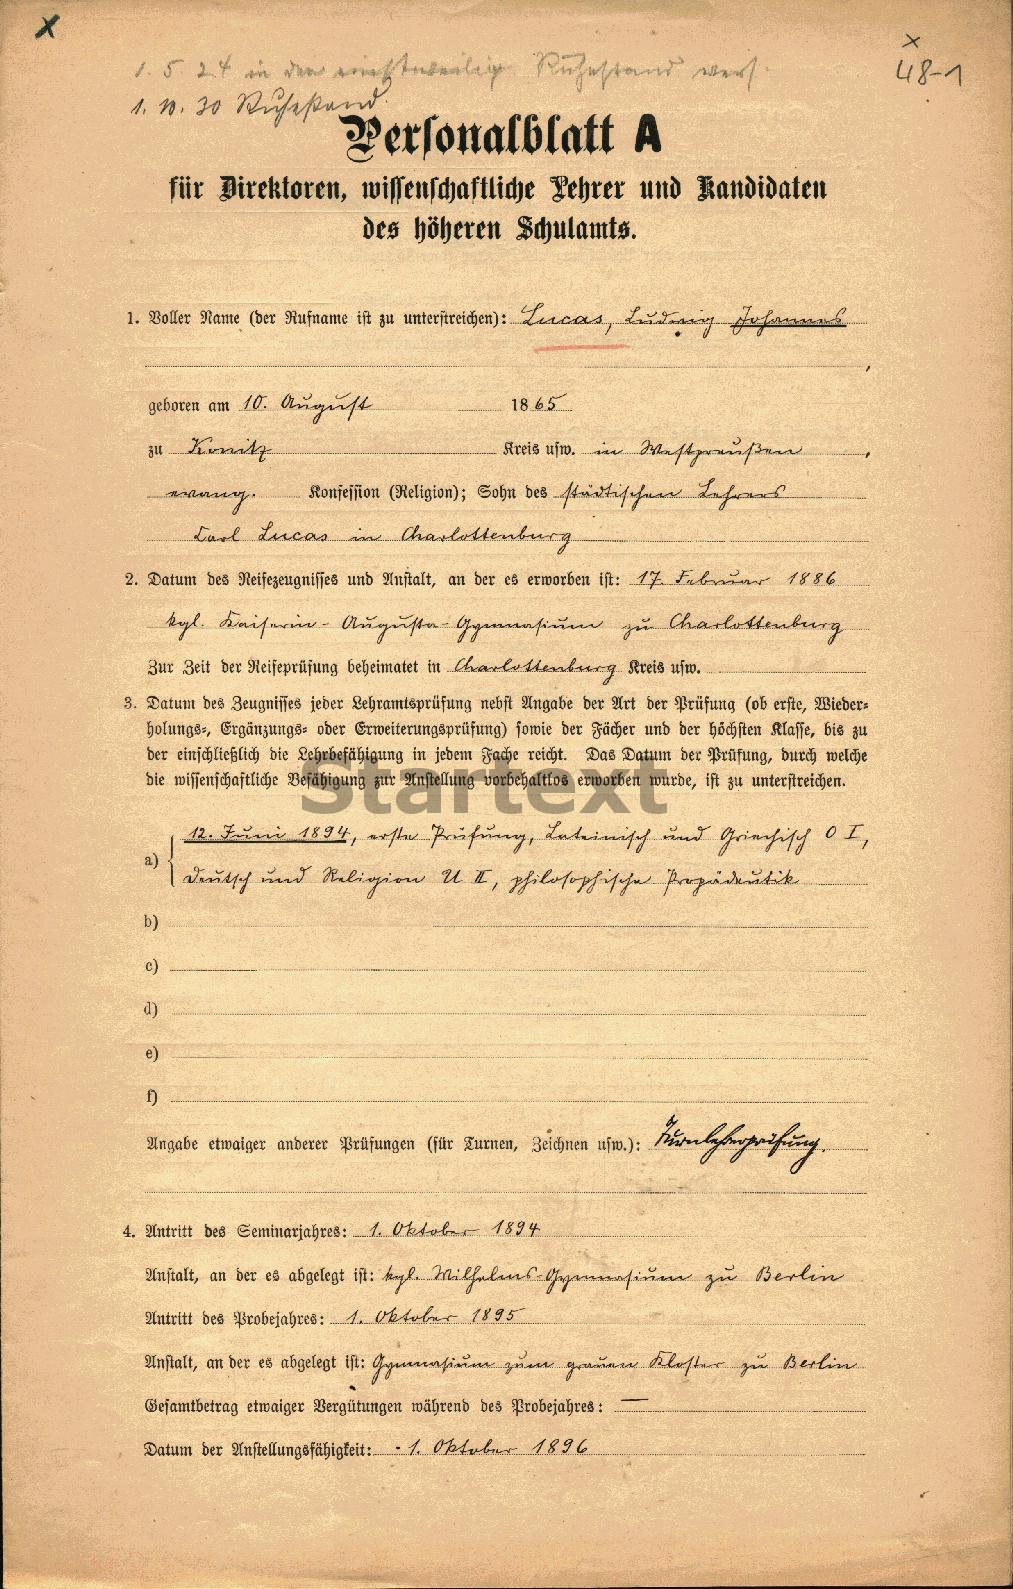 x
x
48-1
1. 5. 24 in den einstweilig. Ruhestand vers.
1. 10. 30 Ruhestand.
Personalblatt A
für Direktoren, wissenschaftliche Lehrer und Kandidaten
des höheren Schulamts.
1. Voller Name (der Rufname ist zu unterstreichen): Lucas, Ludwig Johannes
,
geboren am 10. August 1865
zu Konitz Kreis usw. in Westpreußen ,
evang. Konfession (Religion); Sohn des städtischen Lehrers
Carl Lucas in Charlottenburg
2. Datum des Reifezeugnisses und Anstalt, an der es erworben ist: 17. Februar 1886
kgl. Kaiserin-Augusta-Gymnasium zu Charlottenburg
Zur Zeit der Reifeprüfung beheimatet in Charlottenburg Kreis usw.
3. Datum des Zeugnisses jeder Lehramtsprüfung nebst Angabe der Art der Prüfung (ob erste, Wieder-
holungs-, Ergänzungs- oder Erweiterungsprüfung) sowie der Fächer und der höchsten Klasse, bis zu
der einschließlich die Lehrbefähigung in jedem Fache reicht. Das Datum der Prüfung, durch welche
die wissenschaftliche Befähigung zur Anstellung vorbehaltlos erworben wurde, ist zu unterstreichen.
Startext
12. Juni 1894, erste Prüfung, Lateinisch und Griechisch O I,
a)
Deutsch und Religion U II, philosophische Propädeutik
b)
c)
d)
e)
f)
Angabe etwaiger anderer Prüfungen (für Turnen, Zeichnen usw.): Turnlehrerprüfung.
4. Antritt des Seminarjahres: 1. Oktober 1894
Anstalt, an der es abgelegt ist: kgl. Wilhelms-Gymnasium zu Berlin
Antritt des Probejahres: 1. Oktober 1895
Anstalt, an der es abgelegt ist: Gymnasium zum grauen Kloster zu Berlin
Gesamtbetrag etwaiger Vergütungen während des Probejahres: —
Datum der Anstellungsfähigkeit: 1. Oktober 1896